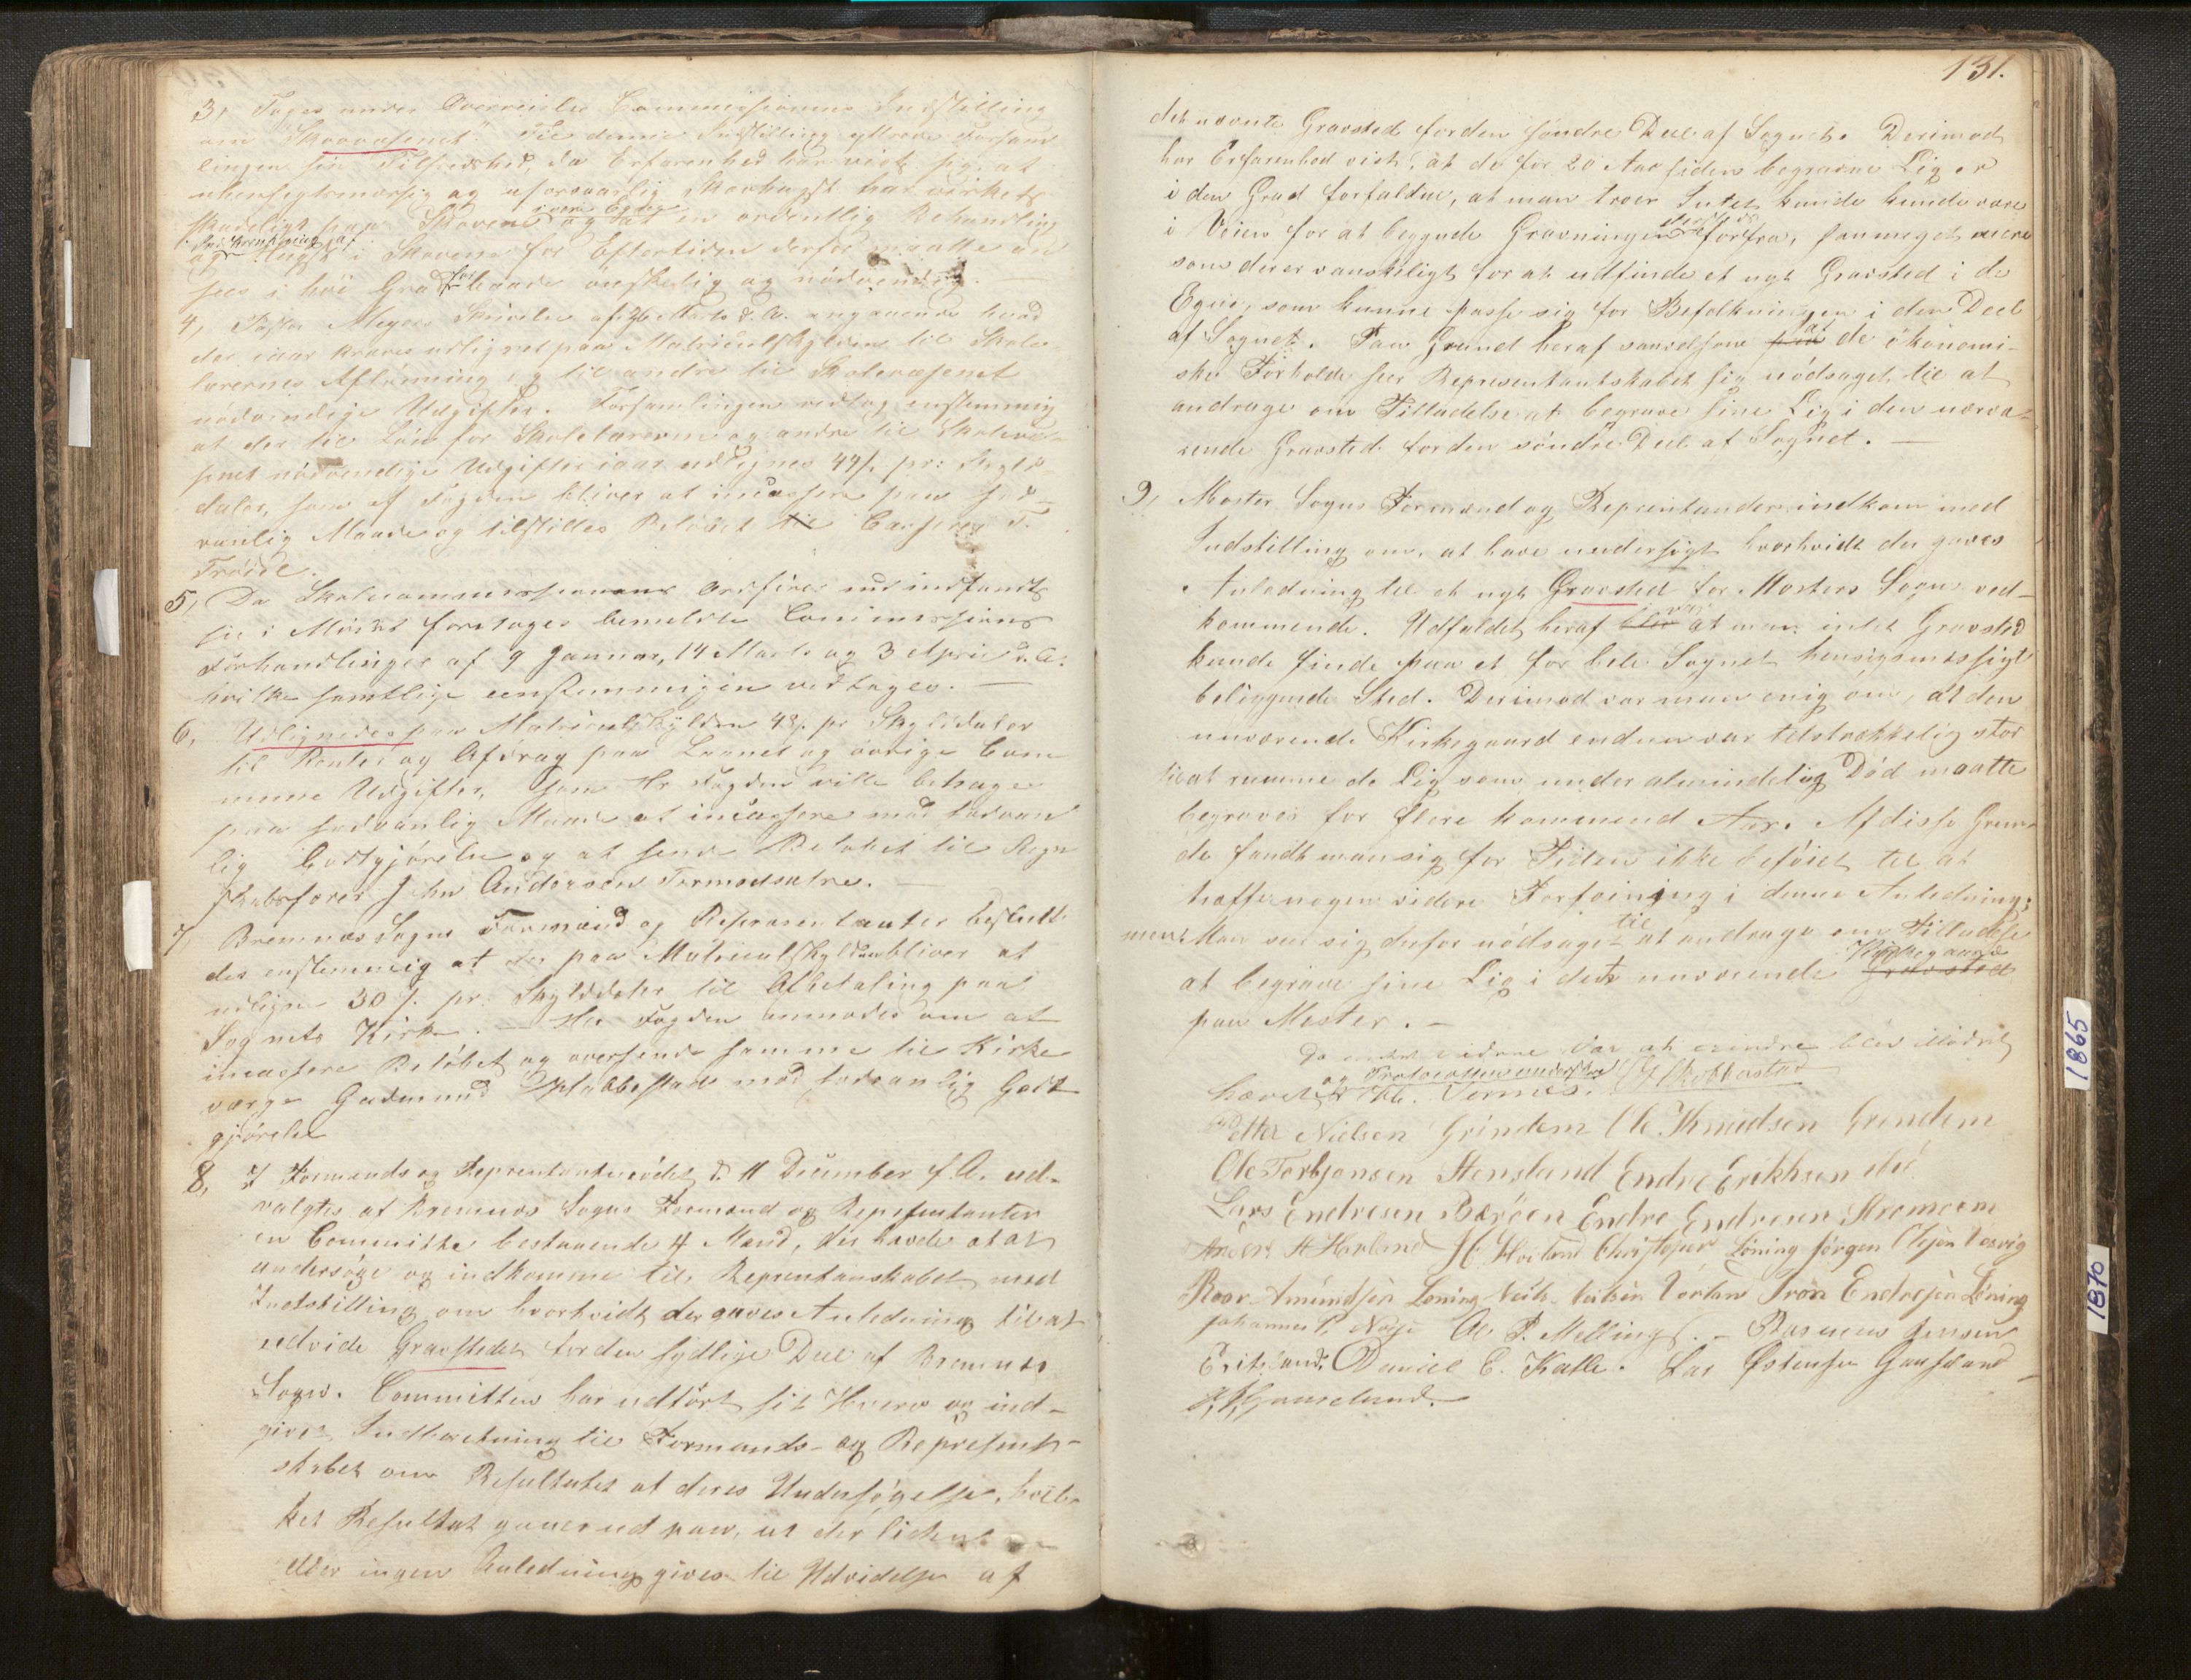 3, Toges under Overveielse Commissionens Indstilling
om "Skovvæsenet". Til denne Indstilling yttrede Forsam
lingen sin Tilfredshed, da Erfarenhed har vist sig, at
uhensigtsmæssig og uforsvarlig Skovhugst har virket
skadeligt paa Skoven og at en ordentlig Behandling
Indskrænkning af
og Hugst i Skovene for Eftertiden derfor maatte an
sees i höi Grad for baade önskelig og nödvendig. —
4, Pastor Meyers Skrivelse af 26 Marts d. A. angaaende hvad
der iaar kræves udlignet paa Matriculskylden til Skole
lærernes Aflönning og til andre til Skolevæsenet
nödvendige Udgifter. Forsamlingen vedtog enstemmig
at der til Lön for Skolelærerne og andre til Skolevæ
senet nödvendige Udgifter iaar udlignes 44 s. pr: Skyld
daler, som af Fogden bliver at incassere paa sæd-
vanlig Maade og tilstilles Belöbet til Casserer T.
Tröite.
5, Da Skolecommissionens Ordförer nu indfandt
sig i Mödet foretoges bemeldte Commissions
Forhandlinger af 9 Januar, 14 Marts og 3 April d. A.
hvilke samtlige eenstemmigen vedtoges. —
6, Udlignedes paa Matriculskylden 48 s. pr Skylddaler
til Renter og Afdrag paa Laanet og övrige Com
mune Udgifter, som Hr Fogden ville behage
paa sædvanlig Maade at incassere mod sædvan
lig Godtgjörelse og at sende Belöbet til Regn
skabsförer John Andersen Tormodsætre. —
7, Bremnæs Sogns Formænd og Repræsentanter beslutte
des enstemmig at der paa Matriculskylden bliver at
udligne 30 s. pr: Skylddaler til Afbetaling paa
Sognets Kirke. — Hr. Fogden anmodes om at
incassere Belöbet og oversende samme til Kirke
værge Gudmund Habbestad mod sædvanlig Godt
gjörelse
8, I Formands og Reprentantmödet d. 11 December f. A. ud-
valgtes af Bremnæs Sogns Formænd og Representanter
en Committe bestaaende 4 Mænd, der havde at at
undersöge og indkomme til Reprentanskabet med
Indstilling om hvorvidt der gaves Anledning til at
udvide Gravstedet for den sydlige Deel af Bremnæs
Sogn. Committeen har udfört sit Hverv og ind-
givet Indberetning til Formands- og Represent-
skabet om Resultatet af deres Undersögelse, hvil-
ket Resultat gaaer ud paa, at der lident
eller ingen Anledning gives til Udvidelse af
131.
det nævnte Gravsted for den söndre Deel af Sognet. Derimod
har Erfarenhed vist, at de for 20 Aar siden begravne Lig er
i den Grad forfaldne, at man troer Intet kunde kunde være
i Veien for at begynde Gravningen forfra, saameget mere
som det er vanskeligt for at udfinde et nyt Gravsted i de
Egne, som kunne passe sig for Befolkningen i den Deel
af Sognet. Paa Grund heraf saavelsom af de ökonomi-
ske Forholde seer Representantskabet sig nödsaget til at
andrage om Tilladelse at begrave sine Lig i den nærvæ-
rende Gravsted for den söndre Deel af Sognet. —
9, Moster Sogns Formænd og Reprentander indkom med
Indstilling om, at have undersögt hvorvidt der gaves
Anledning til et nyt Gravsted for Mosters Sogn ved-
kommende. Udfaldet heraf var at man intet Gravsted
kunde finde paa et for hele Sognet hensigsmæssigt
beliggende Sted. Derimod var man enig om, at den
nuværende Kirkegaard endnu var telstrækkelig stor
til at rumme de Lig som under almindelig Död maatte
begraves for flere kommend Aar. Af disse Grun-
de fandt man sig for Tiden ikke beföiet til at
træffe nogen videre Forföining i denne Anledning;
men Man seer sig derfor nödsaget til at andrage om Tilladelse
at begrave sine Lig i det nuværende Kirkegaard Gravsted
paa Moster. —
Da intet videre var at erindre blev Mödet
hævet og Protocollen underskrevet
Th. Vernes. G Habbestad
Petter Nielsen Grindem Ole Knudsen Grindem
Ole Torbjønsen Stensland Endre Erikhsen
Lars Endresen Bæröen Endre Endresen Strömöen
Anders H Havland H. Hovland Christofer Löning Jørgen Olsen Vesvig
Roar Amundsen Løning Tron Endresen Löning
Johannes P. Næse Ole P. Melling. — Rasmus Jensen
Eritsland. Daniel C. Kalle. Lar Østensen Gausland
Gauseland. —
1865
1870